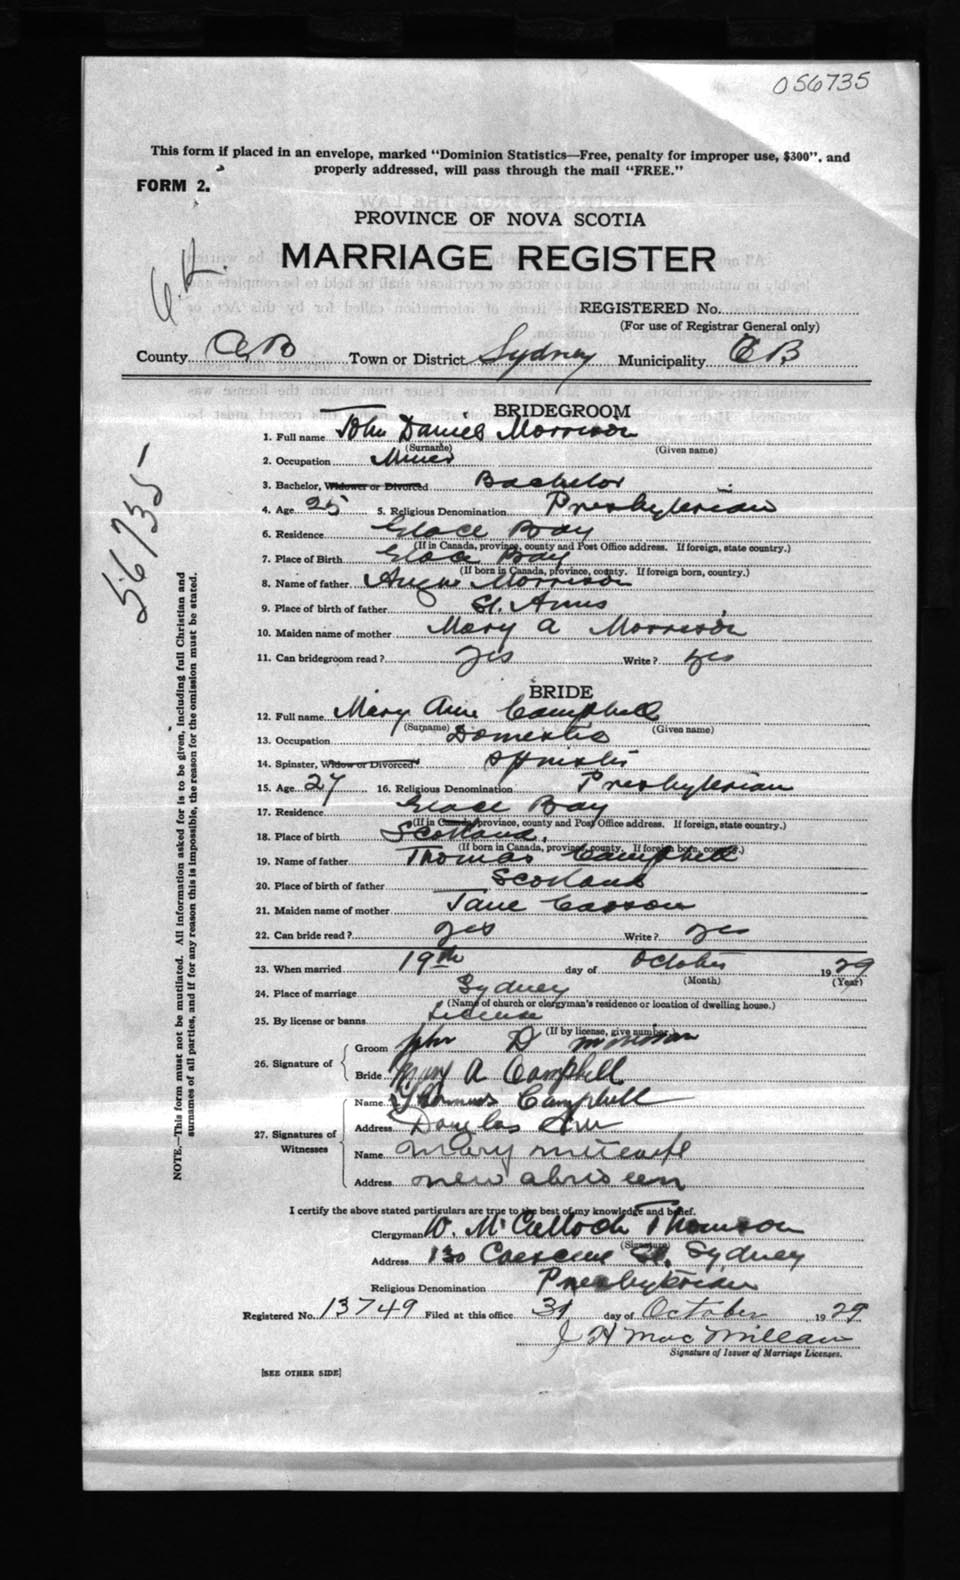 056735
This form if placed in an envelope, marked "Dominion Statistics—Free, penalty for improper use, $300", and
properly addressed, will pass through the mail "FREE."
FORM 2.
PROVINCE OF NOVA SCOTIA
MARRIAGE REGISTER
REGISTERED No.
(For use of Registrar General only)
County C B Town or District Sydney Municipality C B
56735
NOTE.—This form must not be mutilated. All information asked for is to be given, including full Christian and
surnames of all parties, and if for any reason this is impossible, the reason for the omission must be stated.
BRIDEGROOM
1. Full name John Daniel Morrison
(Surname) (Given name)
2. Occupation Miner
3. Bachelor, Widower or Divorced Bachelor
4. Age 25 5. Religious Denomination Presbyterian
6. Residence Glace Bay
(If in Canada, province, county and Post Office address. If foreign, state country.)
7. Place of Birth Glace Bay
(If born in Canada, province, county. If foreign born, country.)
8. Name of father Angus Morrison
9. Place of birth of father St. Anns
10. Maiden name of mother Mary A Morrison
11. Can bridegroom read? yes Write? yes
BRIDE
12. Full name Mary Ann Campbell
(Surname) (Given name)
13. Occupation Domestic
14. Spinster, Widow or Divorced Spinster
15. Age 27 16. Religious Denomination Presbyterian
17. Residence Glace Bay
(If in Canada province, county and Post Office address. If foreign, state country.)
18. Place of birth Scotland.
(If born in Canada, province, county. If foreign born, country.)
19. Name of father Thomas Campbell
20. Place of birth of father Scotland
21. Maiden name of mother Jane
22. Can bride read? yes Write? yes
23. When married 19th day of October 1929
(Month) (Year)
24. Place of marriage Sydney
(Name of church or clergyman's residence or location of dwelling house.)
25. By license or banns License
(If by license, give number.)
26. Signature of
Groom John D Morrison
Bride Mary A Campbell
27. Signatures of
Witnesses
Name Thomas Campbell
Address Douglas Ave
Name Mary Metcalfe
Address new
I certify the above stated particulars are true to the best of my knowledge and belief.
Clergyman W. McCulloch Thomson
(Signature)
Address 130 St. Sydney
Religious Denomination Presbyterian
Registered No. 13749 Filed at this office 31 day of October 1929
J H MacMillan
Signature of Issuer of Marriage Licenses.
[SEE OTHER SIDE]